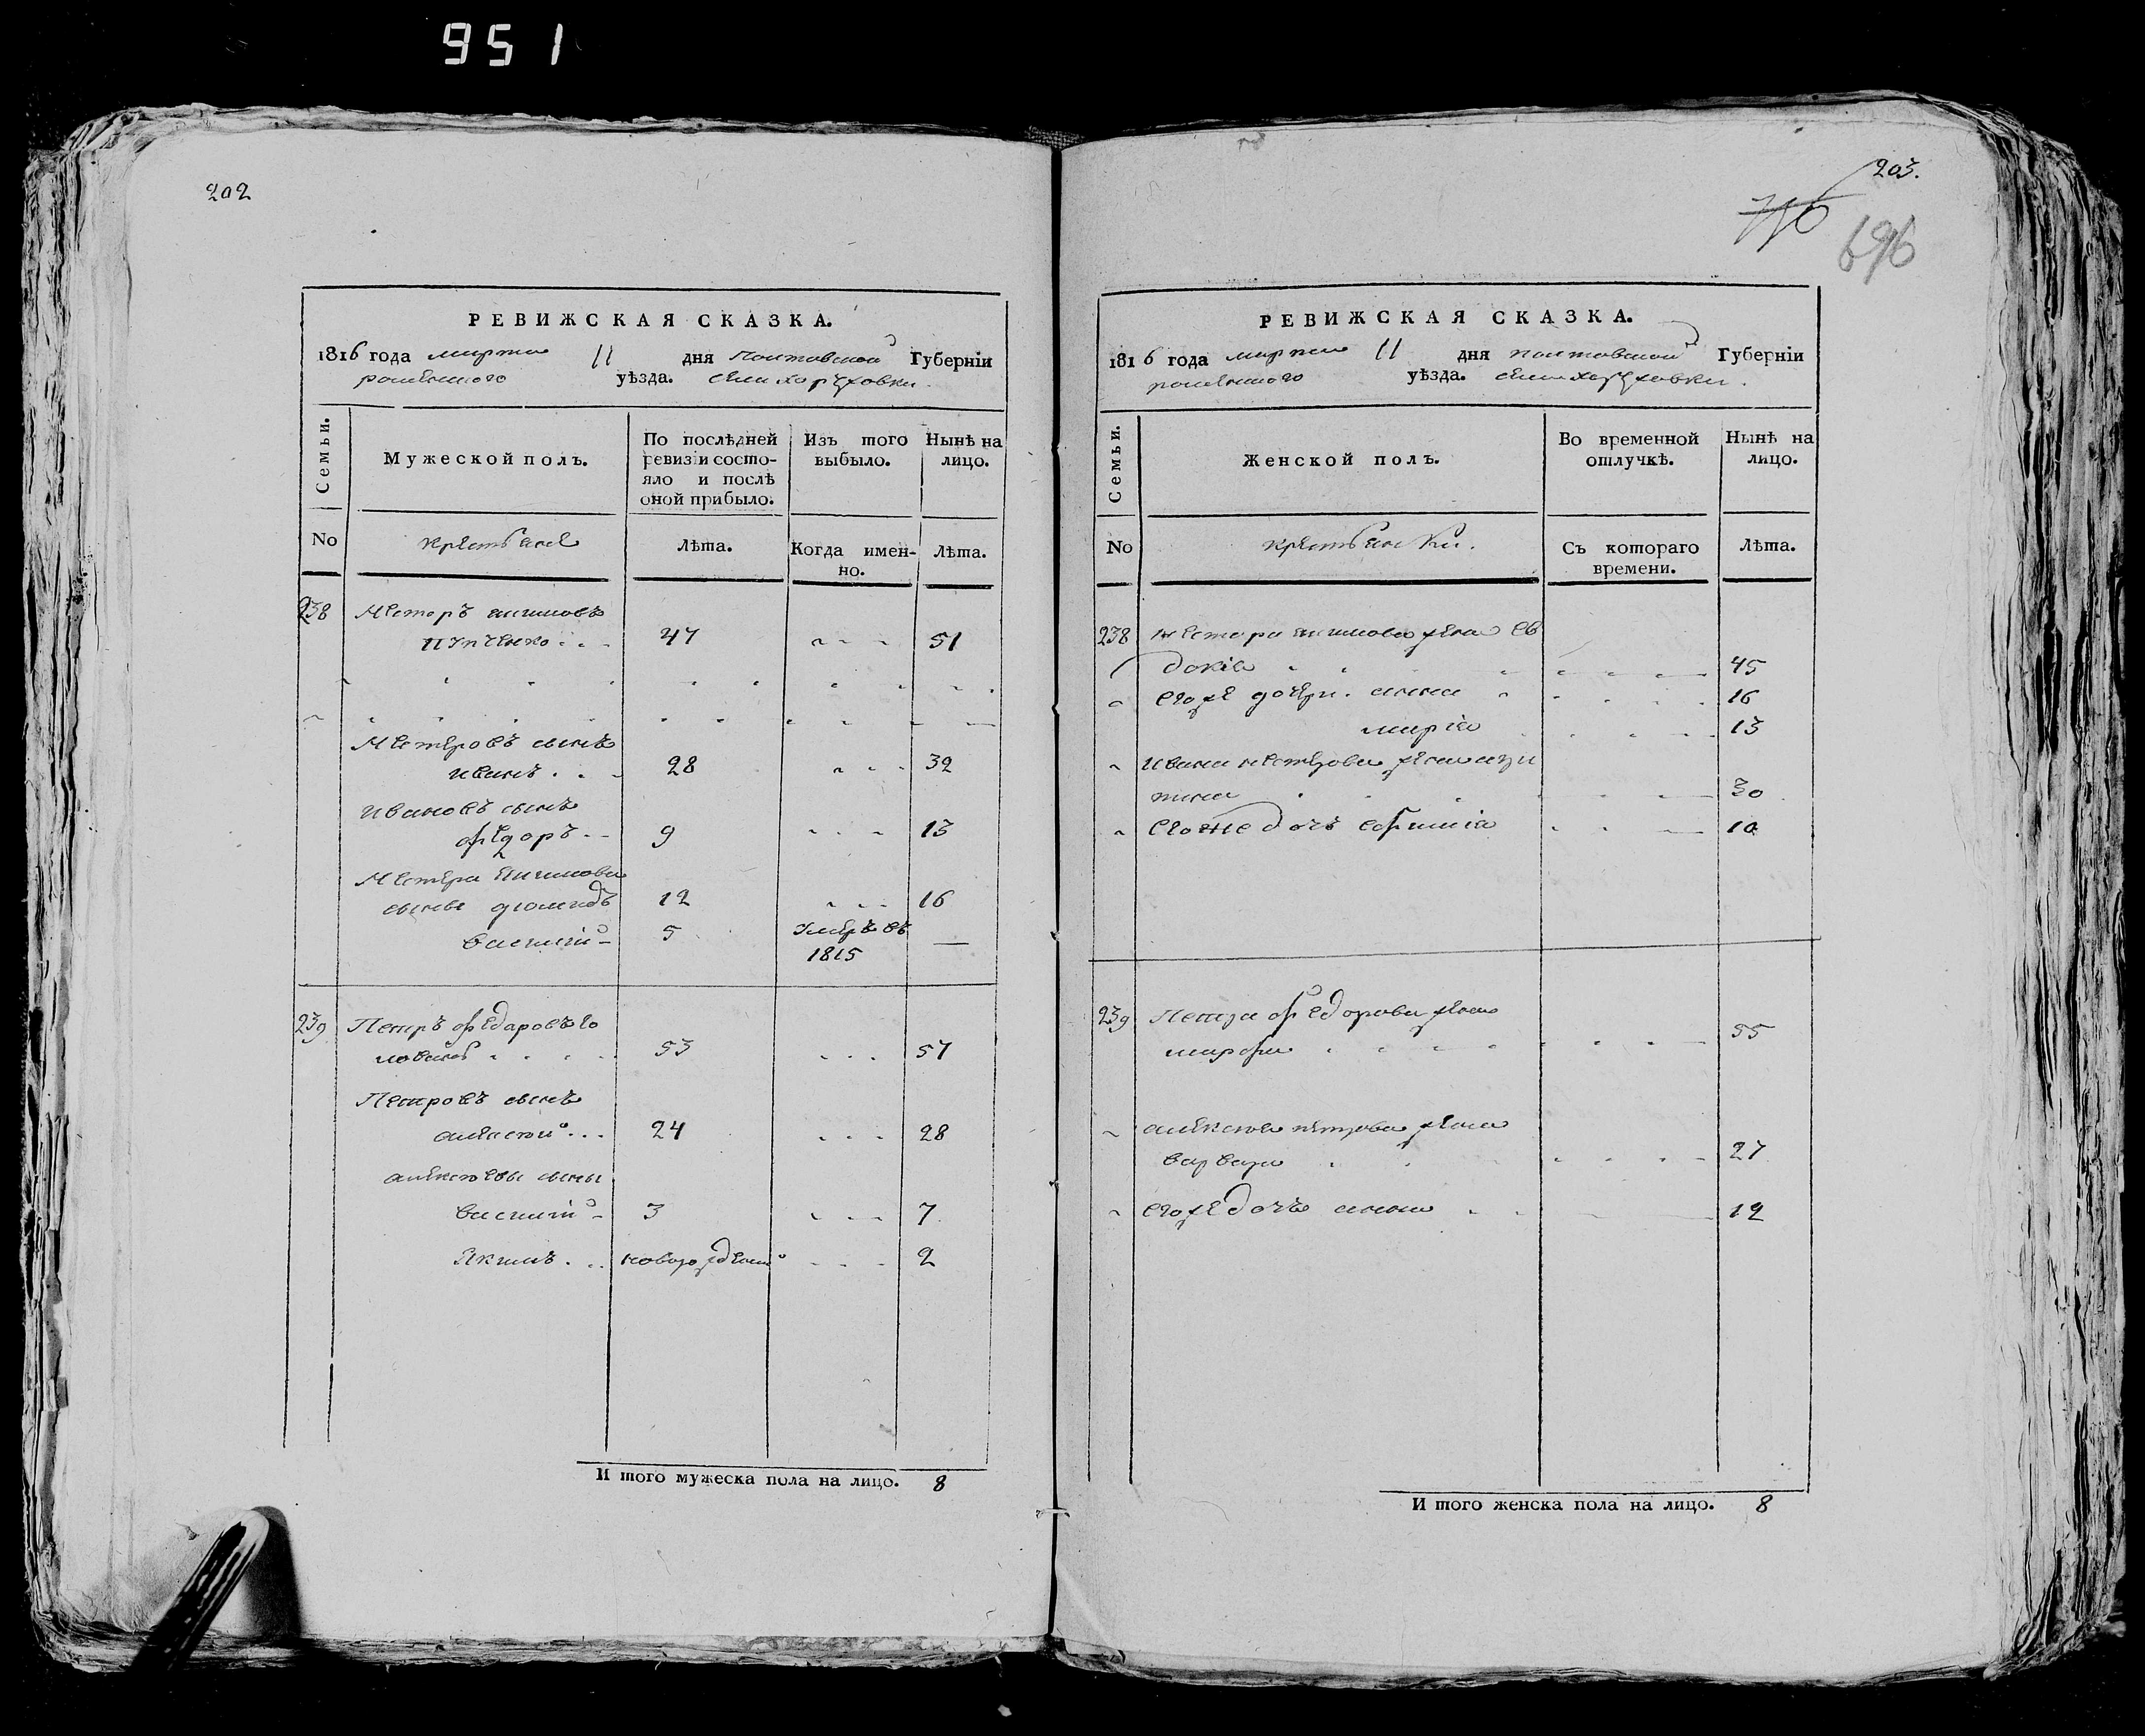 951
202
РЕВИЖСКАЯ СКАЗКА.
1816 года марта 11 дня полтавской Губерніи
роменского уѣзда. села хоружовки.
Семьи.
Мужеской полъ.
По послѣдней
ревизіи состо-
яло и послѣ
оной прибыло.
Изъ того
выбыло.
Нынѣ на
лицо.
No
крестьяне
Лѣта.
Когда имен-
но.
Лѣта.
238 Несторъ
47 51
Нестеровъ сынъ
иванъ 28 32
ивановъ сынъ
федоръ 9 13
Нестера
сыны диомидъ 12 16
василій 5 умеръ въ —
1815
239 Петръ федаровъ го
ловань 53 57
Петровъ сынъ
алексѣй 24 28
алексѣевы сыны
василій 3 7
Якимъ новорожденый 2
И того мужеска пола на лицо. 8
203.
716
696
РЕВИЖСКАЯ СКАЗКА.
1816 года марта 11 дня полтавской Губерніи
роменского уѣзда. села хоружовки.
Семьи.
Женской полъ.
Во временной
отлучкѣ.
Нынѣ на
лицо.
No
крестьянки.
Съ котораго
времени.
Лѣта.
238 нестора жена ев
докія 45
егоже дочери. анна 16
марія 13
ивана нестерова жена
30
егоже дочъ ефимія 10
239 Петра федорова жена
марфа 55
алексѣя петрова жена
варвара 27
егоже дочъ анна 12
И того женска пола на лицо. 8